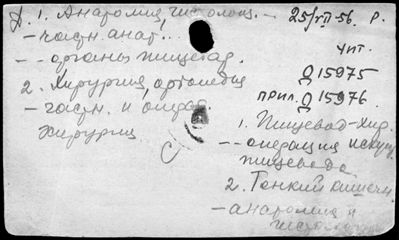 Д. 1. Анатомия, гистология. —
25/VII-56. Р.
— частн. анат...
— — органы пищевар.
чит.
Д 15975
2. Хирургия, ортопедия
прил. Д 15976
— частн. и операт.
хирургия
1. Пищевод-хир.
— — операция искусств.
пищевода
2. Тонкий кишечн.
— анатомия и
гистология